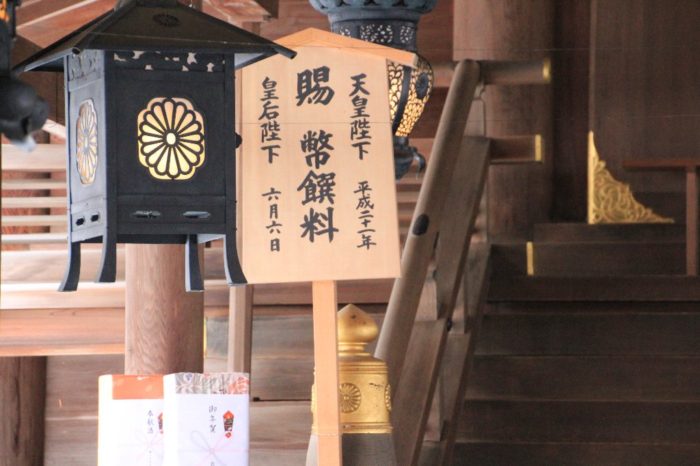 天皇陛下 平成二十一年
賜 幣饌料
皇后陛下 六月六日
奉献酒
御年賀